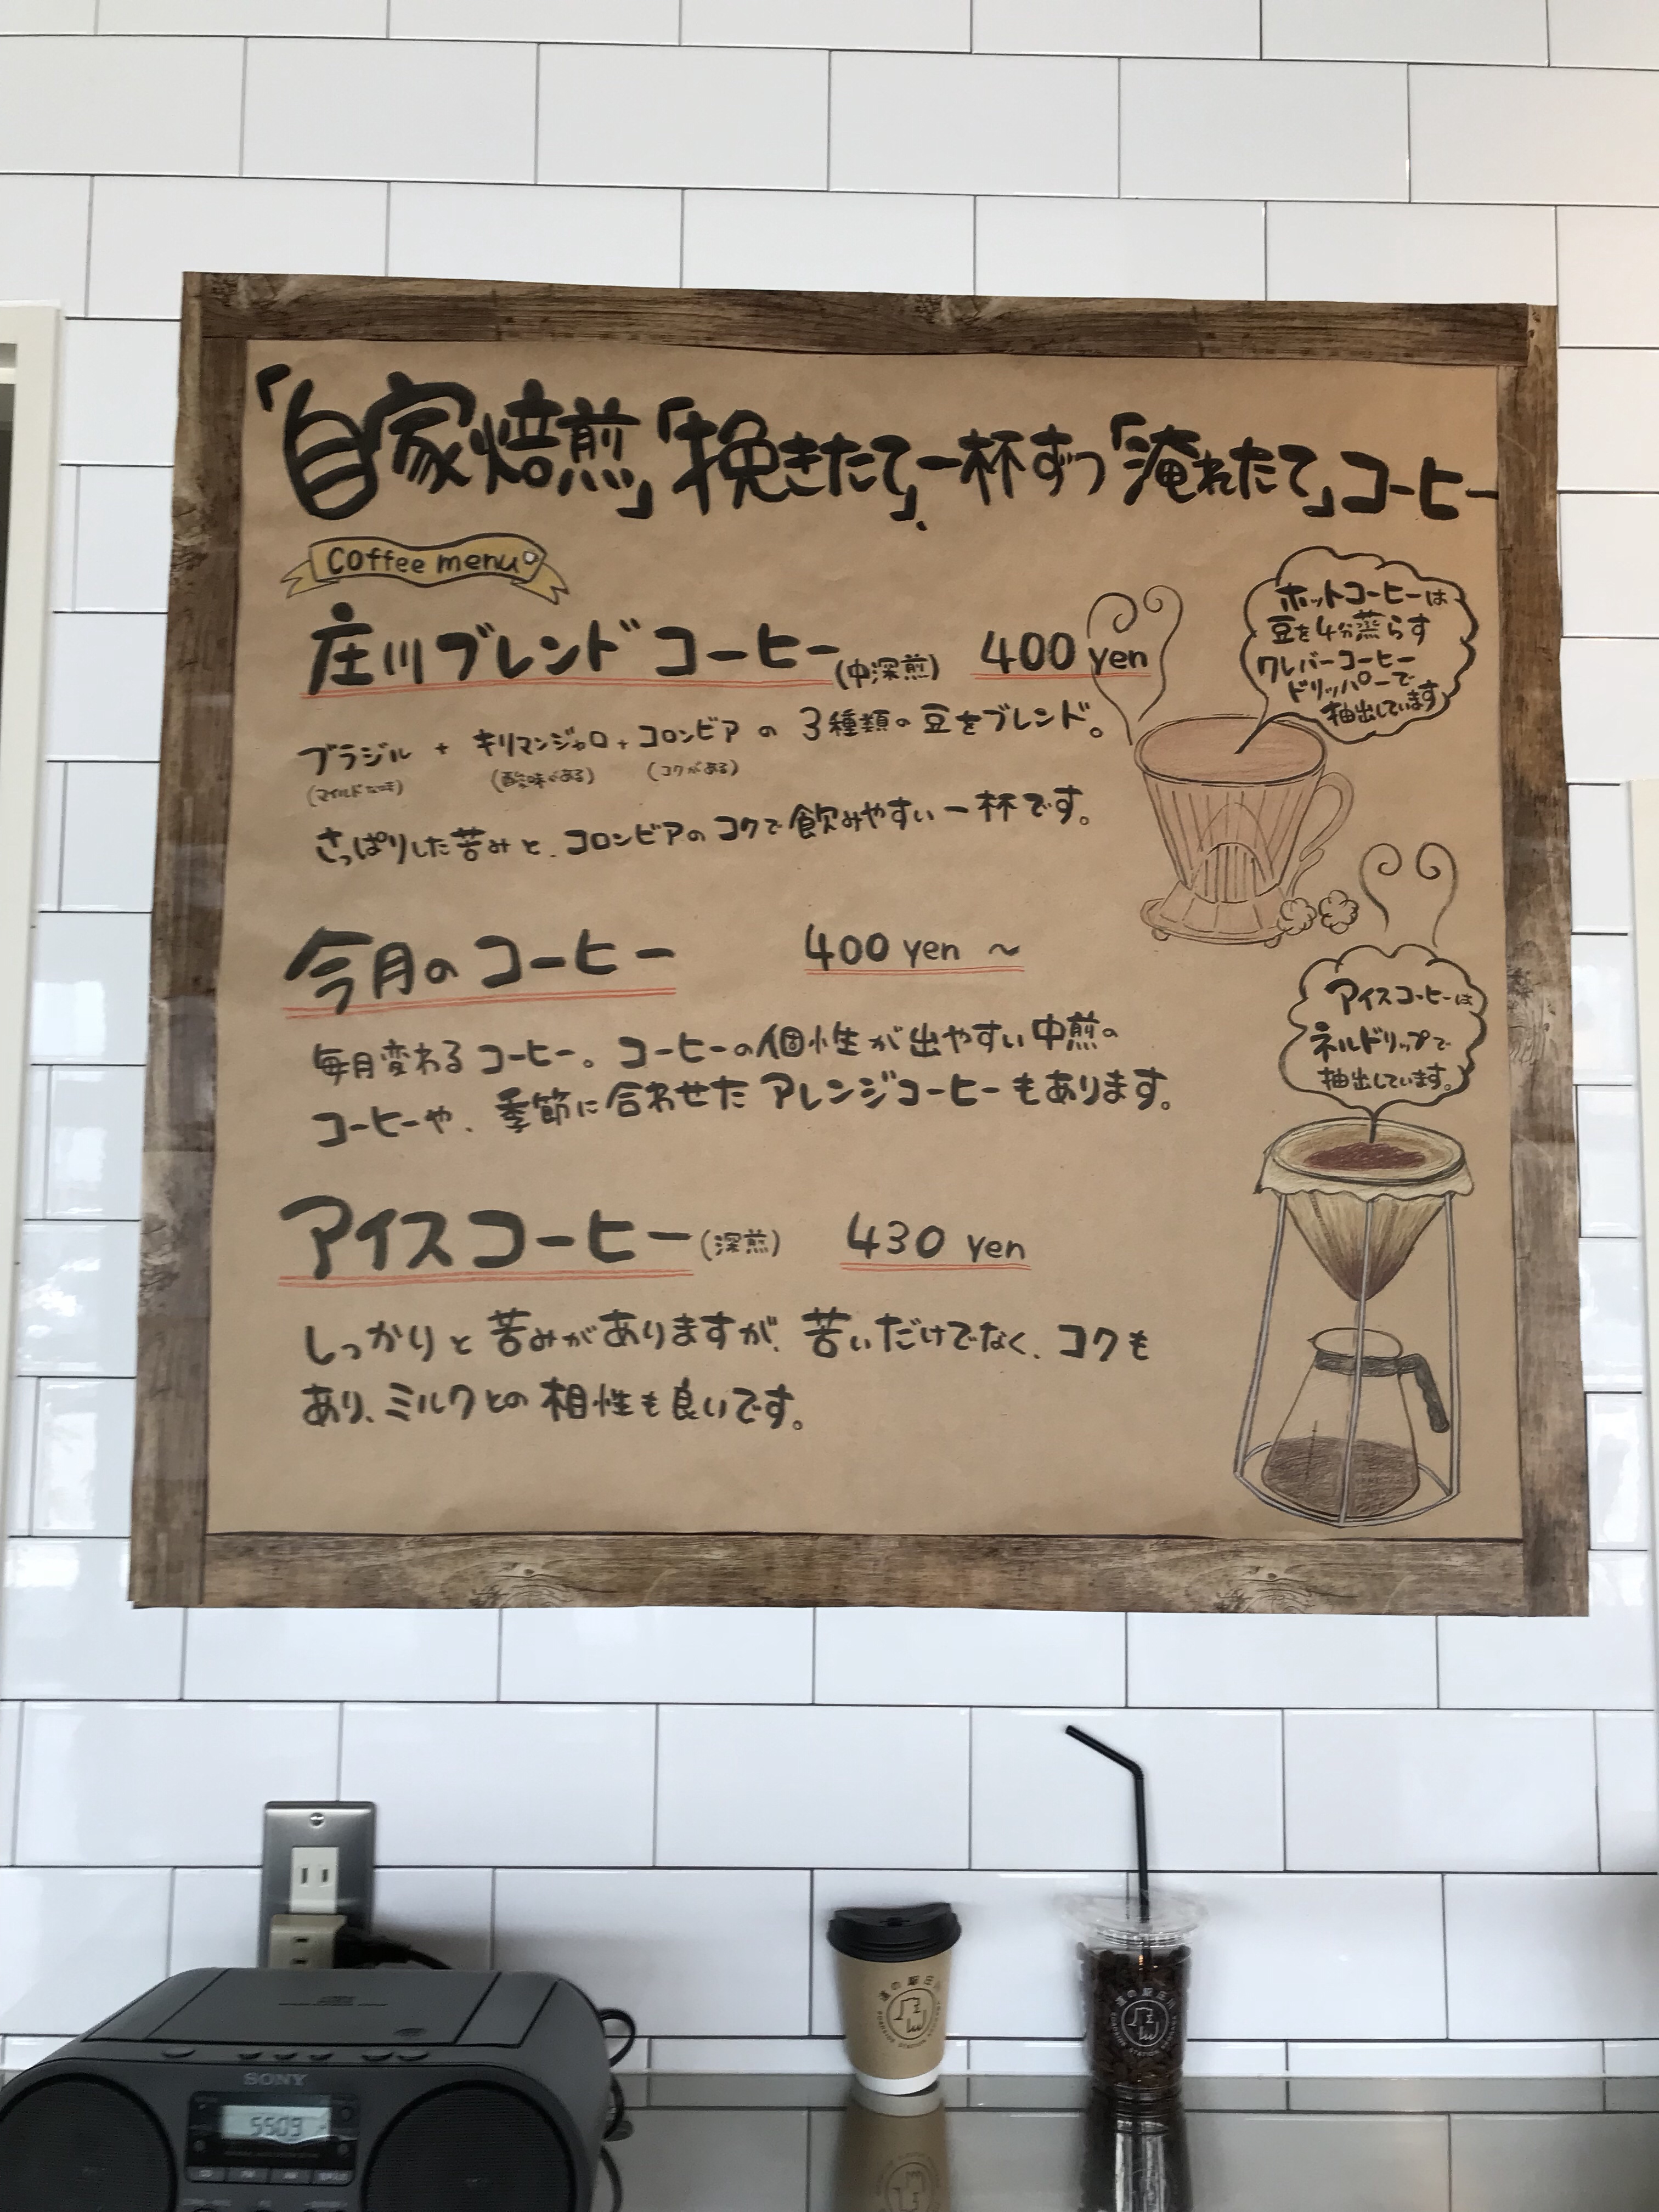 「自家焙煎」「挽きたて」、一杯ずつ「淹れたて」コーヒー
Coffee menu
庄川ブレンドコーヒー(中深煎) 400 yen
ブラジル + キリマンジャロ + コロンビア の 3種類の豆をブレンド。
(マイルドな味) (酸味がある) (コクがある)
さっぱりした苦みと、コロンビアのコクで飲みやすい一杯です。
ホットコーヒーは
豆を4分蒸らす
クレバーコーヒー
ドリッパーで
抽出しています
今月のコーヒー 400 yen ~
毎月変わるコーヒー。コーヒーの個性が出やすい中煎の
コーヒーや、季節に合わせたアレンジコーヒーもあります。
アイスコーヒーは
ネルドリップで
抽出しています。
アイスコーヒー(深煎) 430 yen
しっかりと苦みがありますが、苦いだけでなく、コクも
あり、ミルクとの相性も良いです。
道の駅庄川
道の駅庄川
SONY
5503